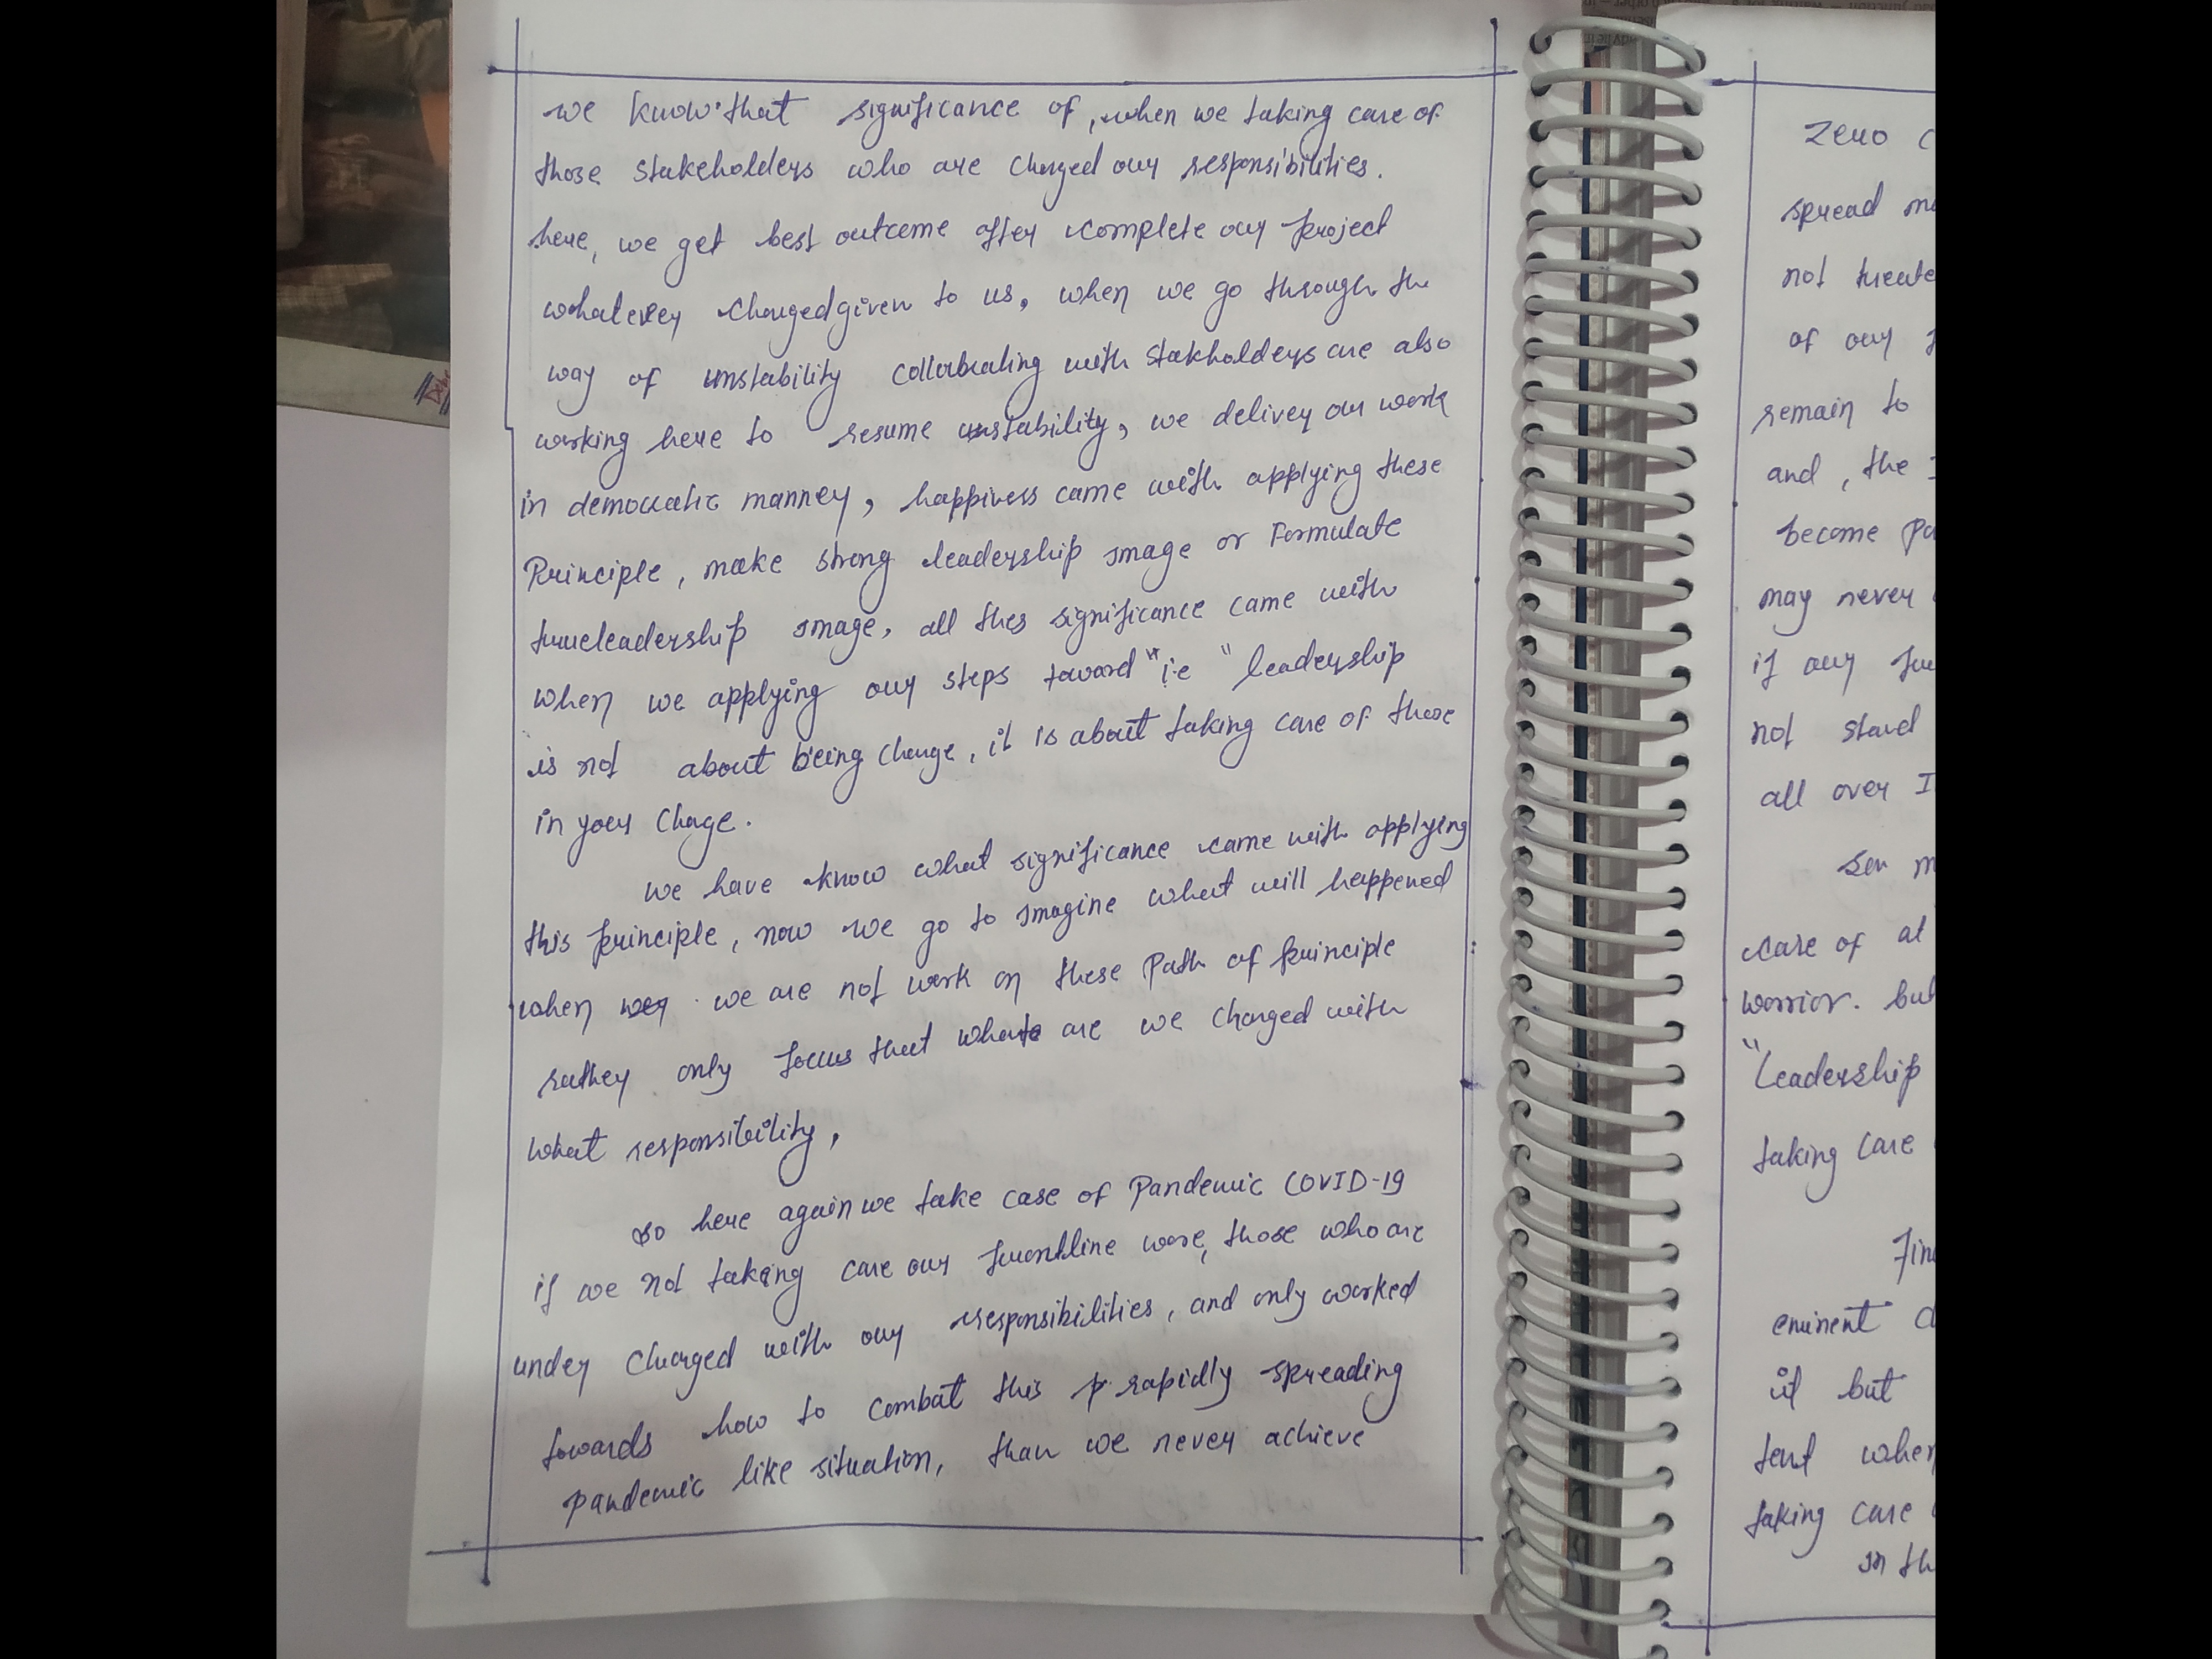 we know that significance of, when we taking care of
those stakeholders who are charged our responsibilities.
here, we get best outcome after complete our project
whatever charged given to us, when we go through the
way of unstability collabrating with stakholders are also
working here to resume unstability, we deliver our work
in democratic manner, happiness came with applying these
Principle, make strong leadership image or Formulate
trueleadership image, all thes significance came with
when we applying our steps toward" i.e "leadership
is not about being charge, it is about taking care of those
in your charge.
we have know what significance came with applying
this principle, now we go to imagine what will happened
when we are not work on these path of principle
rather only focus that what are we charged with
what responsibility,
so here again we take case of pandemic COVID-19
if we not taking care our frontline wore, those who are
under charged with our responsibilities, and only worked
towards how to combat this rapidly spreading
pandemic like situation, than we never achieve
zero
spread
not
of our
remain to
and, the
become
may never
if our
not stand
all over
care of
worrior.
"Leadership
taking care
eminent
it but
when
taking care
in